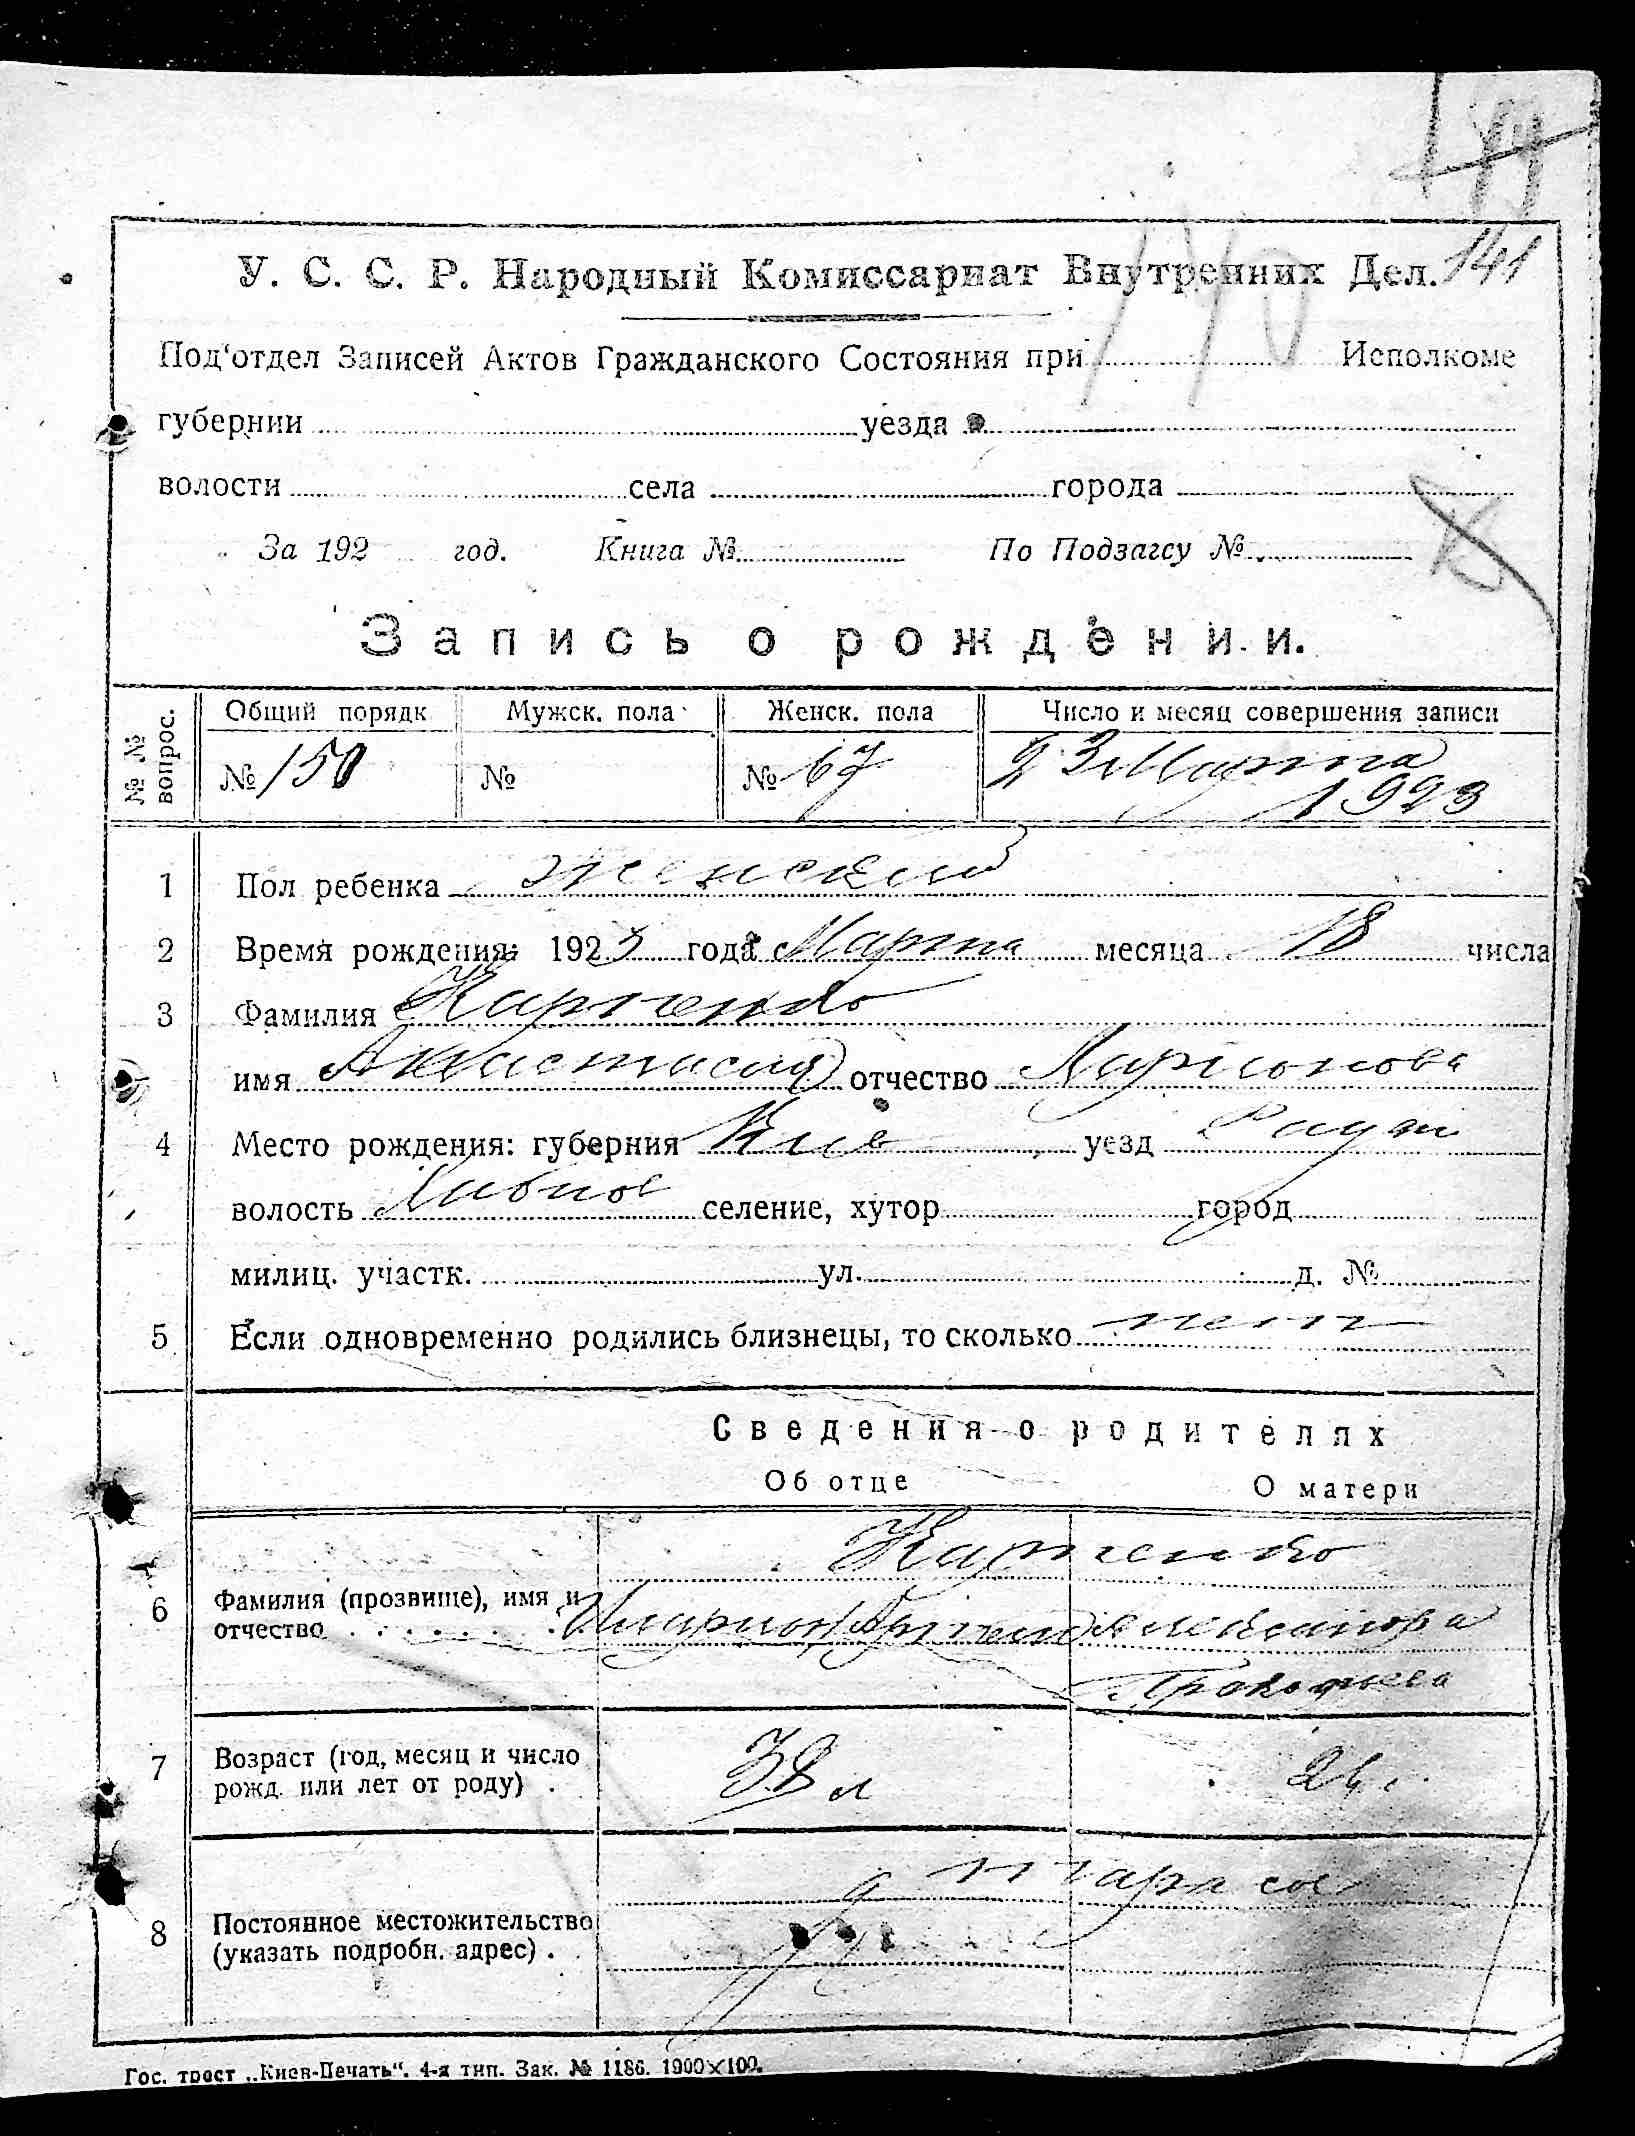 141
У. С. С. Р. Народный Комиссариат Внутренних Дел.
140
Под'отдел Записей Актов Гражданского Состояния при Исполкоме
губернии уезда
волости села города
За 192 год. Книга № По Подзагсу №
Запись о рождении.
№ № вопрос. Общий порядк Мужск. пола Женск. пола Число и месяц совершения записи
№ 150 № № 67 23 Марта
1923
1 Пол ребенка женский
2 Время рождения: 1923 года Марта месяца 18 числа
3 Фамилия Карпенко
имя Анастасия отчество Ларионова
4 Место рождения: губерния Киев уезд
волость селение, хутор город
милиц. участк. ул. д. №
5 Если одновременно родились близнецы, то сколько нет
Сведения о родителях
Об отце О матери
Карпенко
6 Фамилия (прозвище), имя и отчество Иларион Александра
Прокофьева
7 Возраст (год, месяц и число рожд. или лет от роду) . 38 л
8 Постоянное местожительство (указать подробн. адрес) .
Гос. трест „Киев-Печать“. 4-я тип. Зак. № 1186. 1900×100.